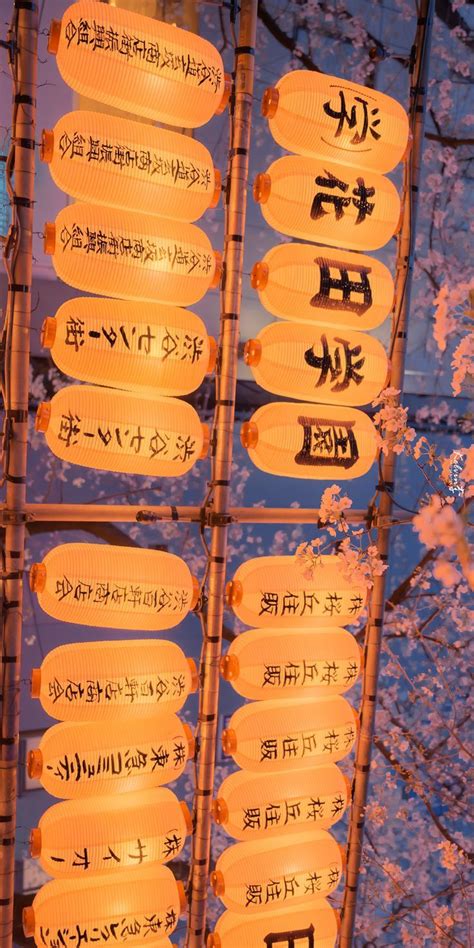 (学)
花
田
学
園
株桜丘住販
株桜丘住販
株桜丘住販
株桜丘住販
株桜丘住販
渋谷道玄坂商店街振興組合
渋谷道玄坂商店街振興組合
渋谷道玄坂商店街振興組合
渋谷センター街
渋谷センター街
渋谷百軒店商店会
渋谷百軒店商店会
(株)東急コミュニティー
(株)サイオー
(株)東急レクリエーション